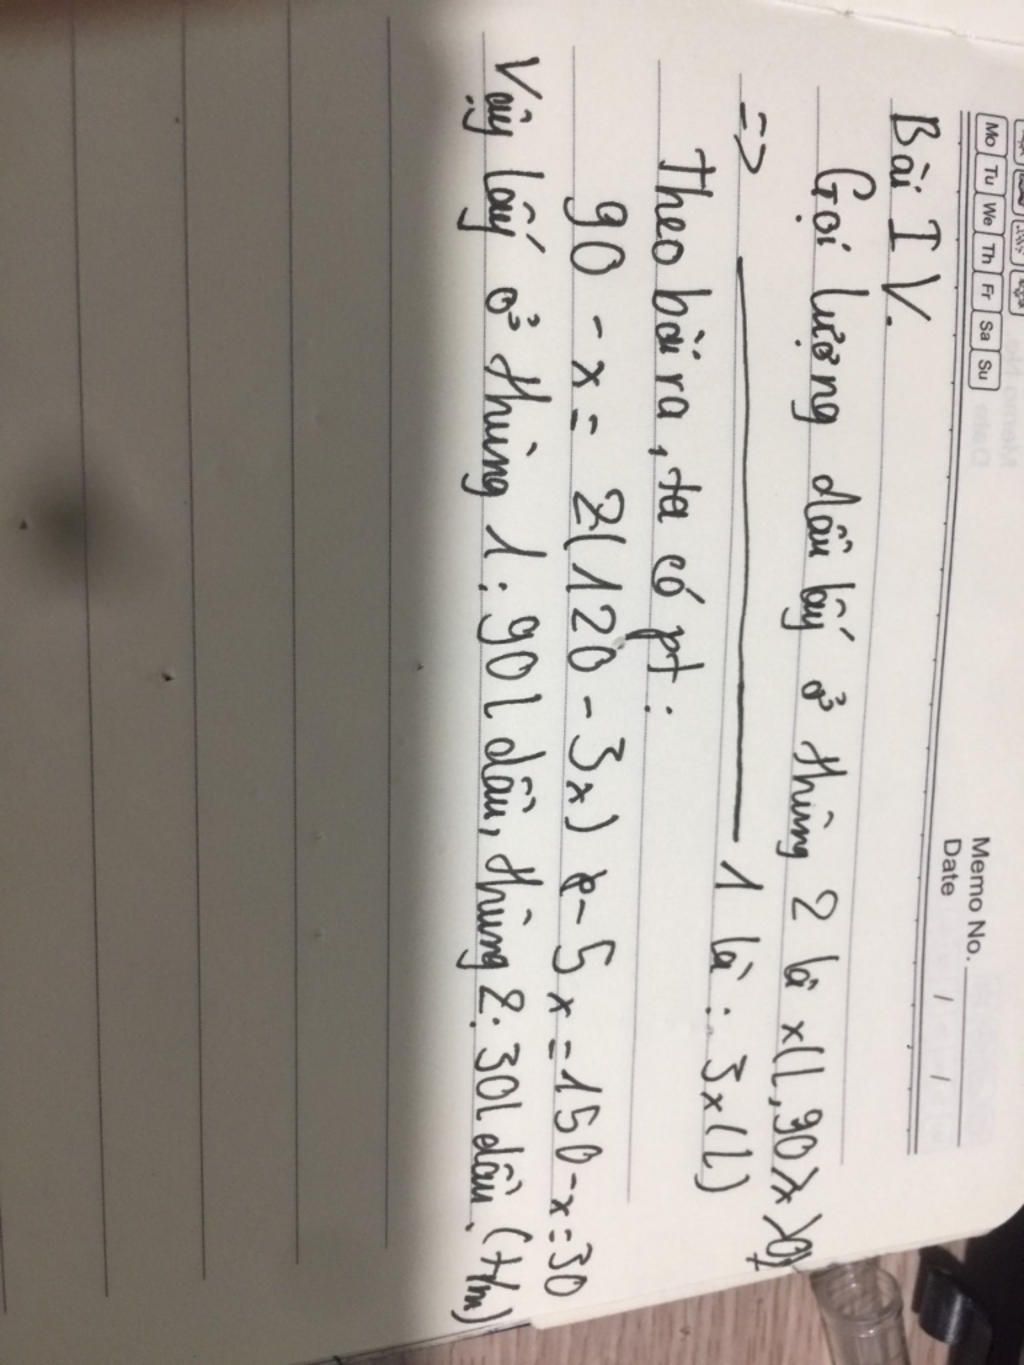 Memo No.
Mo Tu We Th Fr Sa Su
Date / /
Bài IV.
Gọi lượng dầu lấy ở thùng 2 là x(L, 90 ≥ x > 0)
=> ——— 1 là : 3x(L)
Theo bài ra, ta có pt :
90 - x = 2(120 - 3x) - 5x = 150 - x = 30
Vậy lấy ở thùng 1 : 90L dầu, thùng 2 : 30L dầu. (t/m)